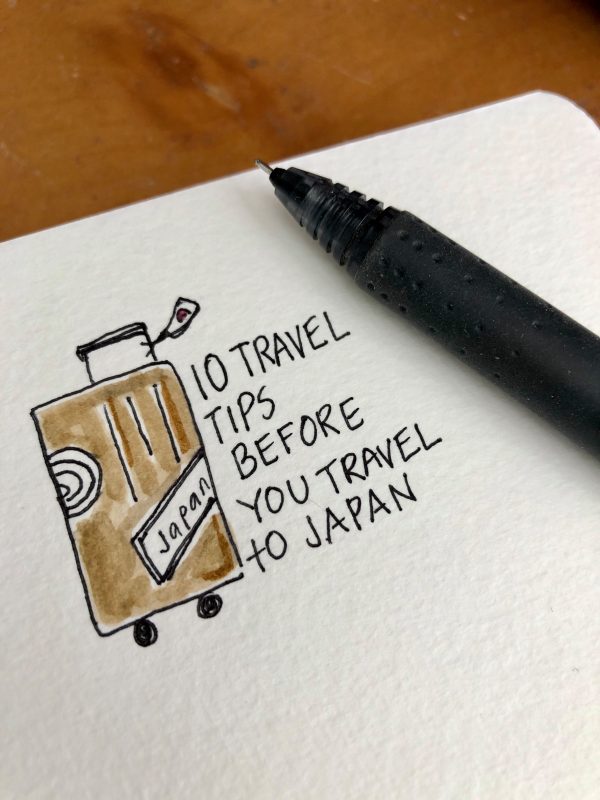 10 TRAVEL
TIPS
BEFORE
YOU TRAVEL
to JAPAN
Japan